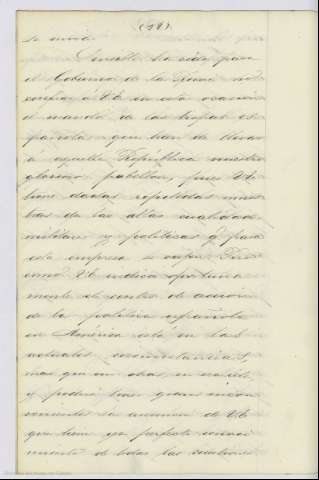 (18)
Sensible ha sido para
el Gobierno de la Reina no
confiar á V.E. en esta ocasión
el mando de las tropas es-
pañolas que han de llevar
á aquella República nuestro
glorioso pabellon, pues V.E.
tiene dadas repetidas mues-
tras de las altas cualidades
militares y políticas q. para
esta empresa se
como V.E. indica oportuna
mente el centro de accion
de la politica española
en América está en las
actuales circunstancias,
mas que en otras, en
y podria tener graves incon
venientes la ausencia de V.E.
que tiene ya perfecto conoci
miento de todas las cuestiones